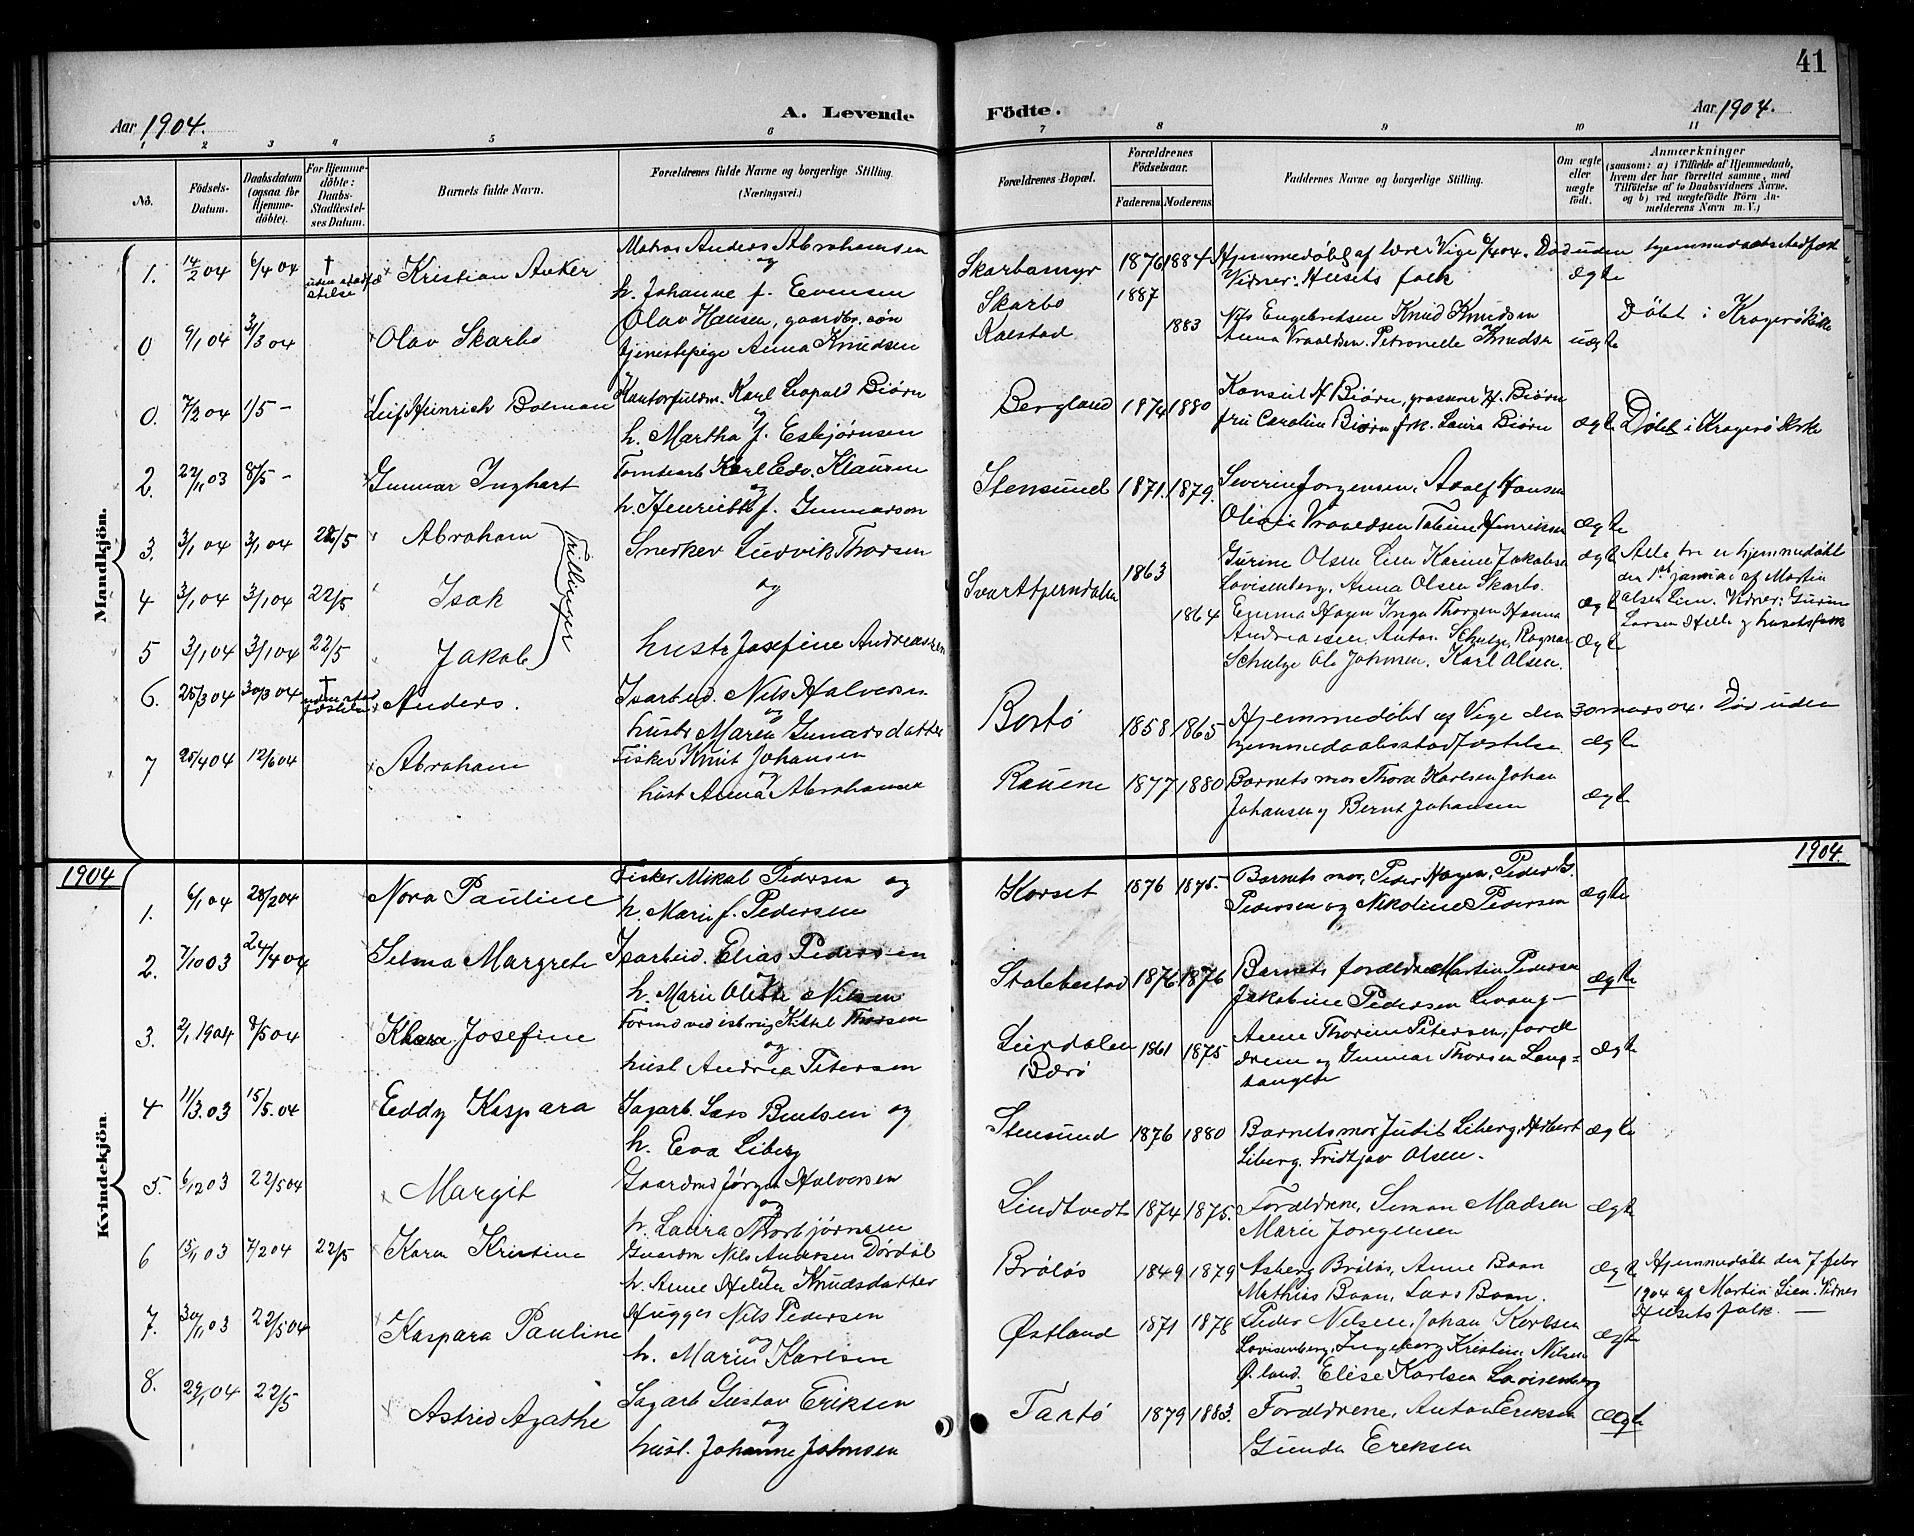 41
Aar 1904.
A. Levende
Födte.
Aar 1904.
1 2 3 4 5 6 7 8 9 10 11
No.
Födsels-Datum.
Daabsdatum (ogsaa for Hjemme-döbte).
For Hjemme-döbte: Daabs-Stadfæstel-ses Datum.
Barnets fulde Navn.
Forældrenes fulde Navne og borgerlige Stilling. (Næringsvei.)
Forældrenes Bopæl.
Forældrenes Födselsaar.
Faderens. Moderens.
Faddernes Navne og borgerlige Stilling.
Om ægte eller uægte födt.
Anmærkninger
(saasom: a) i Tilfælde af Hjemmedaab, hvem der har forrettet samme, med Tilföielse af to Daabsvidners Navne, og b) ved uægtefödte Börn An-melderens Navn m. V.)
Mandkjön.
1. 14/2 04 6/4 04 † uden stadfæstelse Kristian Anker
Matros Anders Abrahamsen og h. Johanne f. Evensen
Skarbomyr 1876 1884 Hjemmedøbt af lærer Vige 6/4 04. Død uden hjemmedaabsstadfæst
Vidner: Husets folk ægte
0 9/1 04 3/3 04 Olav Skarbo
Olav Hansen, gaardbr. søn
tjenestepige Anna Knudsen
Skarbo 1887
Kalstad 1883
Nils Engebretsen Knud Knudsen
Anna Vraaldsen. Petronelle Knudsen uægte
Døbt i Kragerø kirke
0. 7/2 04 1/5 - Leif Heinrich Bolman
Kontorfuldm. Karl Leopold Biørn og
h. Martha f. Esbjørnsen
Bergland 1874 1880
Konsul H. Biørn, H. Biørn
fru Caroline Biørn frk. Laura Biørn ægte Døbt i Kragerø Kirke
2. 22/11 03 8/5 - Gunnar Inghart
Tomtearb Karl Edv. Klausen og
h. Henriette f. Gunnarson
Stensund 1871. 1879.
Severin Jørgensen, Adolf Hansen
Olivia Vraaldsen Tobine Henriksen ægte
3. 3/1 04 3/1 04 22/5 Abraham
4 3/1 04 3/1 04 22/5 Isak
5 3/1 04 3/1 04 22/5 Jakob
Trillinger
Snerker Ludvik Thorsen
og
hustr Josefine Andreassen
Svarttjerndalen 1863
1864
Gurine Olsen Lien Karine Jakobsen
Lovisenberg, Anna Olsen Skarbo.
Emma Hagen Inga Thorsen Hanna
Andreassen, Anton Schulze, Ragnar
Schulze Ole Johnsen, Karl Olsen.
ægte
ægte
ægte
Alle tre er hjemmedøbt
den januar af Martin
Olsen Lien. Vidner: Gurine
Larsen Helle og husetsfolk
6. 25/3 04 30/3 04 † uden stadfæstelse Anders.
Isarbeid. Nils Halvorsen og
hustr Maren Gunarsdatter
Bortø 1858 1865
Hjemmedøbt af Vige den 30 mars 04. Død uden
hjemmedaabsstadfæstelse. ægte
7 25/4 04 12/6 04 Abraham
Fisker Knut Johansen og
hust Anna Abrahamsen
Rauene 1877 1880
Barnets mor Thora Karlsen Johan
Johansen og Bernt Johansen ægte
1904
1904.
Kvindekjön.
1. 6/1 04 28/2 04 Nora Pauline
Fisker Mikal Pedersen og
h. Marie f. Pedersen
Korset 1876 1875.
Barnets mor, Peder Hagen, Peder G.
Pedersen og Nikoline Pedersen ægte
2. 7/10 03 24/4 04 Selma Margrete
Isarbeid. Elias Pedersen og
h. Marie Olette Nilsen
Stabbestad 1876 1876
Barnets forældre Martin Pedersen
Jakobine Pedersen Levang- ægte
3. 2/1 1904 8/5 04 Klara Josefine
Formd ved isbrug Kittel Thorsen og
hust Andrea Petersen
Leirdalen
Bærø 1861 1875
Anne Thorine Petersen, foræl
drene og Gunnar Thorsen Lang=
tangen ægte
4 11/3 03 15/5. 04 Eddy Kaspara
Sagarb. Lars Bentsen og
h. Eva Liberg
Stensund 1876 1880
Barnets mor Judit Liberg, Herbert
Liberg. Fridtjov Olsen. ægte
5. 6/12 03 22/5 04 Margit
Gaardmd Jørgen Halvorsen og
h. Laura Thorbjørnsen
Lindtvedt 1874 1875.
Forældrene, Simon Madsen
Marie Jørgensen ægte
6 15/11 03 7/2 04 22/5 Kara Kristine
Gaardm Nils Andersen Dørdal og
h. Anne Helene Knudsdatter
Brøløs 1849 1879
Asberg Brøløs, Anne Boan
Mathias Boan, Lars Boan. ægte
Hjemmedøbt den 7 febr
1904 af Martin Lien. Vidner
Husets folk. —
7. 30/11 03 22/5 04 Kaspara Pauline
Hugger Nils Pedersen og
h. Marie Karlsen
Østland 1871 1878
Peder Nilsen, Johan Karlsen
Lovisenberg, Ingeborg Kristine Nilsen
Ø.land. Elise Karlsen Lovisenberg ægte
8. 29/1 04 22/5 Astrid Agathe
Sagarb Gustav Eriksen
og
hust. Johanne Johnsen
Taatø 1879 1883.
Forældrene, Anton Eriksen
Gunda Eriksen ægte